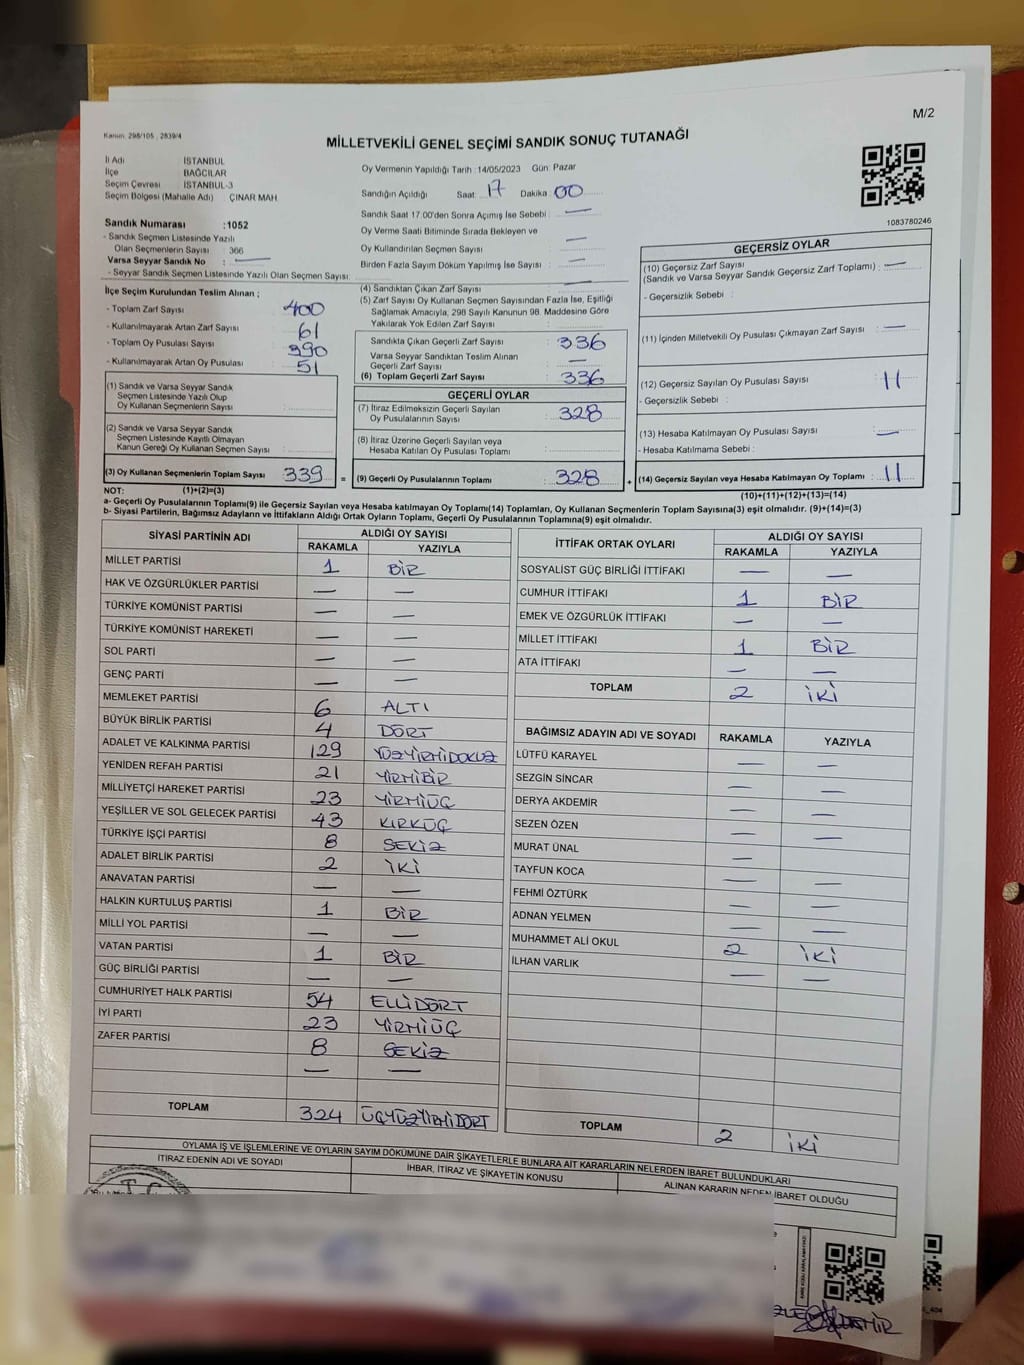 M/2
Kanun: 298/105 , 2839/4
MİLLETVEKİLİ GENEL SEÇİMİ SANDIK SONUÇ TUTANAĞI
İl Adı İSTANBUL
İlçe BAĞCILAR
Seçim Çevresi İSTANBUL-3
Seçim Bölgesi (Mahalle Adı) ÇINAR MAH.
Oy Vermenin Yapıldığı Tarih : 14/05/2023 Gün: Pazar
Sandığın Açıldığı Saat: 17 Dakika: 00
Sandık Saat 17.00'den Sonra Açımış İse Sebebi : —
Oy Verme Saati Bitiminde Sırada Bekleyen ve
Oy Kullandırılan Seçmen Sayısı : —
Birden Fazla Sayım Döküm Yapılmış İse Sayısı : —
1083780246
Sandık Numarası :1052
- Sandık Seçmen Listesinde Yazılı
Olan Seçmenlerin Sayısı : 366
Varsa Seyyar Sandık No : —
- Seyyar Sandık Seçmen Listesinde Yazılı Olan Seçmen Sayısı:
İlçe Seçim Kurulundan Teslim Alınan ;
- Toplam Zarf Sayısı : 400
- Kullanılmayarak Artan Zarf Sayısı : 61
- Toplam Oy Pusulası Sayısı : 390
- Kullanılmayarak Artan Oy Pusulası : 51
(1) Sandık ve Varsa Seyyar Sandık
Seçmen Listesinde Yazılı Olup
Oy Kullanan Seçmenlerin Sayısı :
(2) Sandık ve Varsa Seyyar Sandık
Seçmen Listesinde Kayıtlı Olmayan
Kanun Gereği Oy Kullanan Seçmen Sayısı :
(3) Oy Kullanan Seçmenlerin Toplam Sayısı : 339 =
(4) Sandıktan Çıkan Zarf Sayısı : —
(5) Zarf Sayısı Oy Kullanan Seçmen Sayısından Fazla İse, Eşitliği
Sağlamak Amacıyla, 298 Sayılı Kanunun 98. Maddesine Göre
Yakılarak Yok Edilen Zarf Sayısı :
Sandıkta Çıkan Geçerli Zarf Sayısı : 336
Varsa Seyyar Sandıktan Teslim Alınan
Geçerli Zarf Sayısı : —
(6) Toplam Geçerli Zarf Sayısı : 336
GEÇERLİ OYLAR
(7) İtiraz Edilmeksizin Geçerli Sayılan
Oy Pusulalarının Sayısı : 328
(8) İtiraz Üzerine Geçerli Sayılan veya
Hesaba Katılan Oy Pusulası Toplamı :
(9) Geçerli Oy Pusulalarının Toplamı : 328 +
GEÇERSİZ OYLAR
(10) Geçersiz Zarf Sayısı
(Sandık ve Varsa Seyyar Sandık Geçersiz Zarf Toplamı) : —
- Geçersizlik Sebebi :
(11) İçinden Milletvekili Oy Pusulası Çıkmayan Zarf Sayısı : —
(12) Geçersiz Sayılan Oy Pusulası Sayısı : 11
- Geçersizlik Sebebi :
(13) Hesaba Katılmayan Oy Pusulası Sayısı : —
- Hesaba Katılmama Sebebi :
(14) Geçersiz Sayılan veya Hesaba Katılmayan Oy Toplamı : 11
NOT: (1)+(2)=(3) (10)+(11)+(12)+(13)=(14)
a- Geçerli Oy Pusulalarının Toplamı(9) ile Geçersiz Sayılan veya Hesaba katılmayan Oy Toplamı(14) Toplamları, Oy Kullanan Seçmenlerin Toplam Sayısına(3) eşit olmalıdır. (9)+(14)=(3)
b- Siyasi Partilerin, Bağımsız Adayların ve İttifakların Aldığı Ortak Oyların Toplamı, Geçerli Oy Pusulalarının Toplamına(9) eşit olmalıdır.
SİYASİ PARTİNİN ADI ALDIĞI OY SAYISI
RAKAMLA YAZIYLA
MİLLET PARTİSİ 1 BİR
HAK VE ÖZGÜRLÜKLER PARTİSİ — —
TÜRKİYE KOMÜNİST PARTİSİ — —
TÜRKİYE KOMÜNİST HAREKETİ — —
SOL PARTİ — —
GENÇ PARTİ — —
MEMLEKET PARTİSİ 6 ALTI
BÜYÜK BİRLİK PARTİSİ 4 DÖRT
ADALET VE KALKINMA PARTİSİ 129 YÜZYİRMİDOKUZ
YENİDEN REFAH PARTİSİ 21 YİRMİBİR
MİLLİYETÇİ HAREKET PARTİSİ 23 YİRMİÜÇ
YEŞİLLER VE SOL GELECEK PARTİSİ 43 KIRKÜÇ
TÜRKİYE İŞÇİ PARTİSİ 8 SEKİZ
ADALET BİRLİK PARTİSİ 2 İKİ
ANAVATAN PARTİSİ — —
HALKIN KURTULUŞ PARTİSİ 1 BİR
MİLLİ YOL PARTİSİ — —
VATAN PARTİSİ 1 BİR
GÜÇ BİRLİĞİ PARTİSİ — —
CUMHURİYET HALK PARTİSİ 54 ELLİDÖRT
İYİ PARTİ 23 YİRMİÜÇ
ZAFER PARTİSİ 8 SEKİZ
— —
TOPLAM 324 ÜÇYÜZYİRMİDÖRT
İTTİFAK ORTAK OYLARI ALDIĞI OY SAYISI
RAKAMLA YAZIYLA
SOSYALİST GÜÇ BİRLİĞİ İTTİFAKI — —
CUMHUR İTTİFAKI 1 BİR
EMEK VE ÖZGÜRLÜK İTTİFAKI — —
MİLLET İTTİFAKI 1 BİR
ATA İTTİFAKI — —
TOPLAM 2 İKİ
BAĞIMSIZ ADAYIN ADI VE SOYADI RAKAMLA YAZIYLA
LÜTFÜ KARAYEL — —
SEZGİN SİNCAR — —
DERYA AKDEMİR — —
SEZEN ÖZEN — —
MURAT ÜNAL —
TAYFUN KOCA — —
FEHMİ ÖZTÜRK — —
ADNAN YELMEN — —
MUHAMMET ALİ OKUL 2 İKİ
İLHAN VARLIK — —
TOPLAM 2 İKİ
OYLAMA İŞ VE İŞLEMLERİNE VE OYLARIN SAYIM DÖKÜMÜNE DAİR ŞİKAYETLERLE BUNLARA AİT KARARLARIN NELERDEN İBARET BULUNDUKLARI
İTİRAZ EDENİN ADI VE SOYADI İHBAR, İTİRAZ VE ŞİKAYETİN KONUSU ALINAN KARARIN NEDEN İBARET OLDUĞU
T.C.